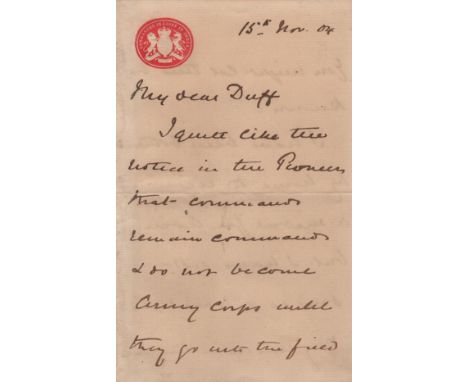 15th Nov. 04
My dear Duff
I quite like the
notice in the Pioneer
that commands
remain commands
& do not become
Army Corps until
they go into the field